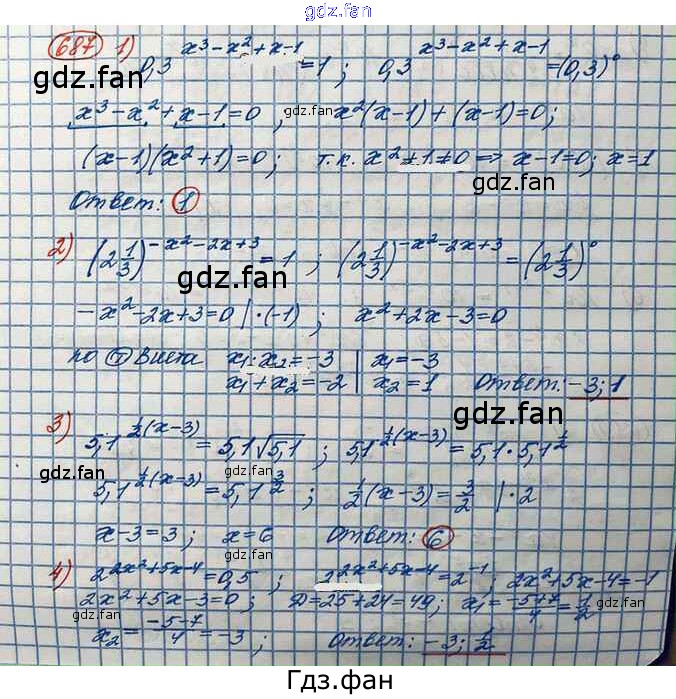 gdz.fan
687 1) 0,3^(x³-x²+x-1) = 1 ; 0,3^(x³-x²+x-1) = (0,3)⁰
gdz.fan gdz.fan
x³-x²+x-1=0 ; x²(x-1)+(x-1)=0;
gdz.fan
(x-1)(x²+1)=0; т.к. x²+1≠0 => x-1=0; x=1
gdz.fan
Ответ: 1
2) (2 1/3)^(-x²-2x+3) = 1 ; (2 1/3)^(-x²-2x+3) = (2 1/3)⁰
gdz.fan
-x²-2x+3=0 |·(-1) ; x²+2x-3=0
по Ⓣ Виета x₁·x₂=-3 | x₁=-3
x₁+x₂=-2 | x₂=1 Ответ: -3; 1
gdz.fan
3) 5,1^(1/2(x-3)) = 5,1√5,1 ; 5,1^(1/2(x-3)) = 5,1·5,1^(1/2)
gdz.fan
5,1^(1/2(x-3)) = 5,1^(3/2) ; 1/2(x-3) = 3/2 |·2
x-3=3; x=6 Ответ: 6
gdz.fan
4) 2^(2x²+5x-4) = 0,5 ; 2^(2x²+5x-4) = 2⁻¹ ; 2x²+5x-4=-1
gdz.fan
2x²+5x-3=0; D=25+24=49; x₁=(-5+7)/4=1/2
x₂=(-5-7)/4=-3 ; Ответ: -3; 1/2
gdz.fan
Гдз.фан